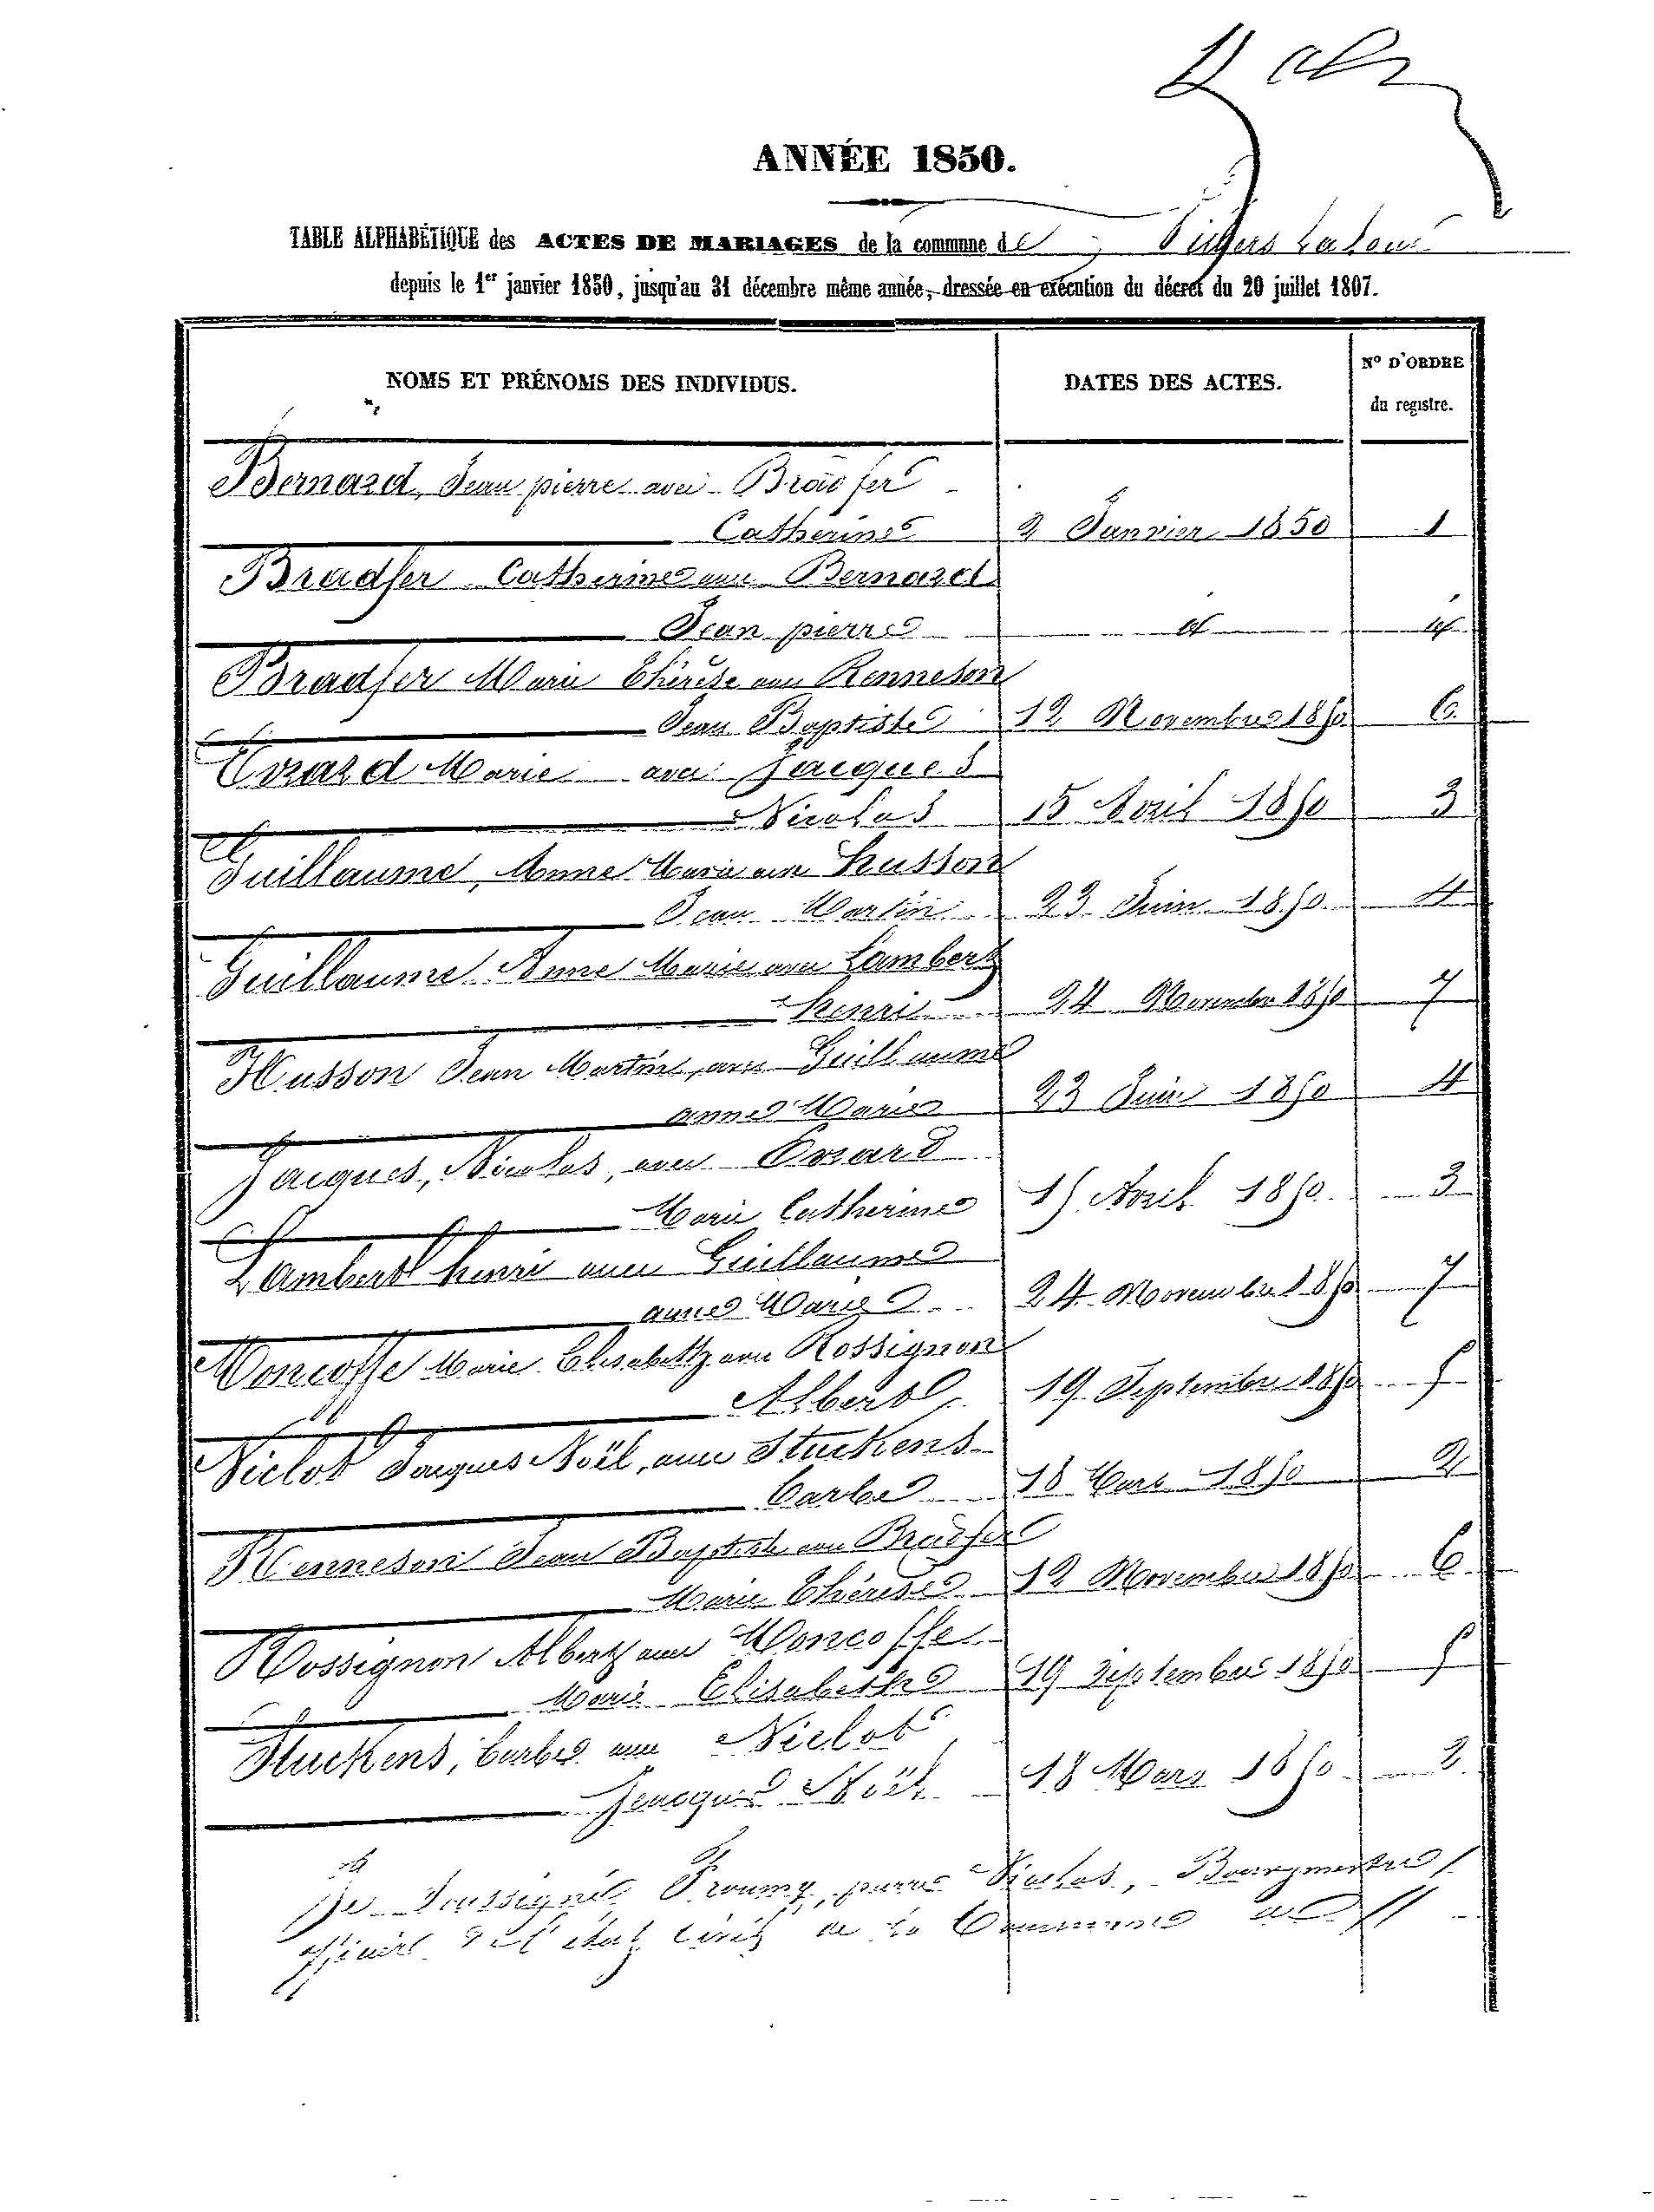 ANNÉE 1850.
TABLE ALPHABÉTIQUE des ACTES DE MARIAGES de la commune de Villers La Loue
depuis le 1er janvier 1850, jusqu'au 31 décembre même année, dressée en exécution du décret du 20 juillet 1807.
NOMS ET PRÉNOMS DES INDIVIDUS. DATES DES ACTES. No D'ORDRE du registre.
Bernard, Jean pierre avec Bradfer
Catherine 2 Janvier 1850 1
Bradfer Catherine avec Bernard
Jean pierre id id
Bradfer Marie Thérèse avec Renneson
Jean Baptiste 12 Novembre 1850 6
Evrard Marie avec Jacques
Nicolas 15 Avril 1850 3
Guillaume, Anne Marie avec husson
Jean Martin 23 Juin 1850 4
Guillaume Anne Marie avec Lambert
henri 24 Novembre 1850 7
Husson Jean Martin, avec Guillaume
anne Marie 23 Juin 1850 4
Jacques, Nicolas, avec Evrard
Marie Catherine 15 Avril 1850 3
Lambert henri avec Guillaume
anne Marie 24 Novembre 1850 7
Moncoffe Marie Elisabeth avec Rossignon
Albert 19 Septembre 1850 5
Niclot Jacques Noël, avec Stuckens
Barbe 18 Mars 1850 2
Renneson Jean Baptiste avec Bradfer
Marie Thérèse 12 Novembre 1850 6
Rossignon Albert avec Moncoffe
Marie Elisabethe 19 Septembre 1850 5
Stuckens, barbe avec Niclot
Jacques Noël 18 Mars 1850 2
Le Soussigné pierre Nicolas, Bourgmestre
officier de l'état civil de la Commune de